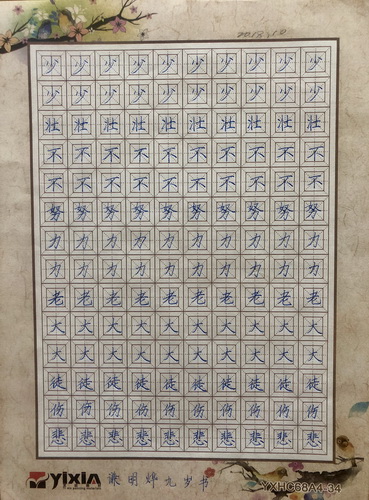 少少少少少少少少少少
少少少少少少少少少少
壮壮壮壮壮壮壮壮壮壮
不不不不不不不不不不
不不不不不不不不不不
努努努努努努努努努努
力力力力力力力力力力
力力力力力力力力力力
老老老老老老老老老老
大大大大大大大大大大
大大大大大大大大大大
徒徒徒徒徒徒徒徒徒徒
伤伤伤伤伤伤伤伤伤伤
悲悲悲悲悲悲悲悲悲悲
yixin 明 九岁书 YXHC68A4-34